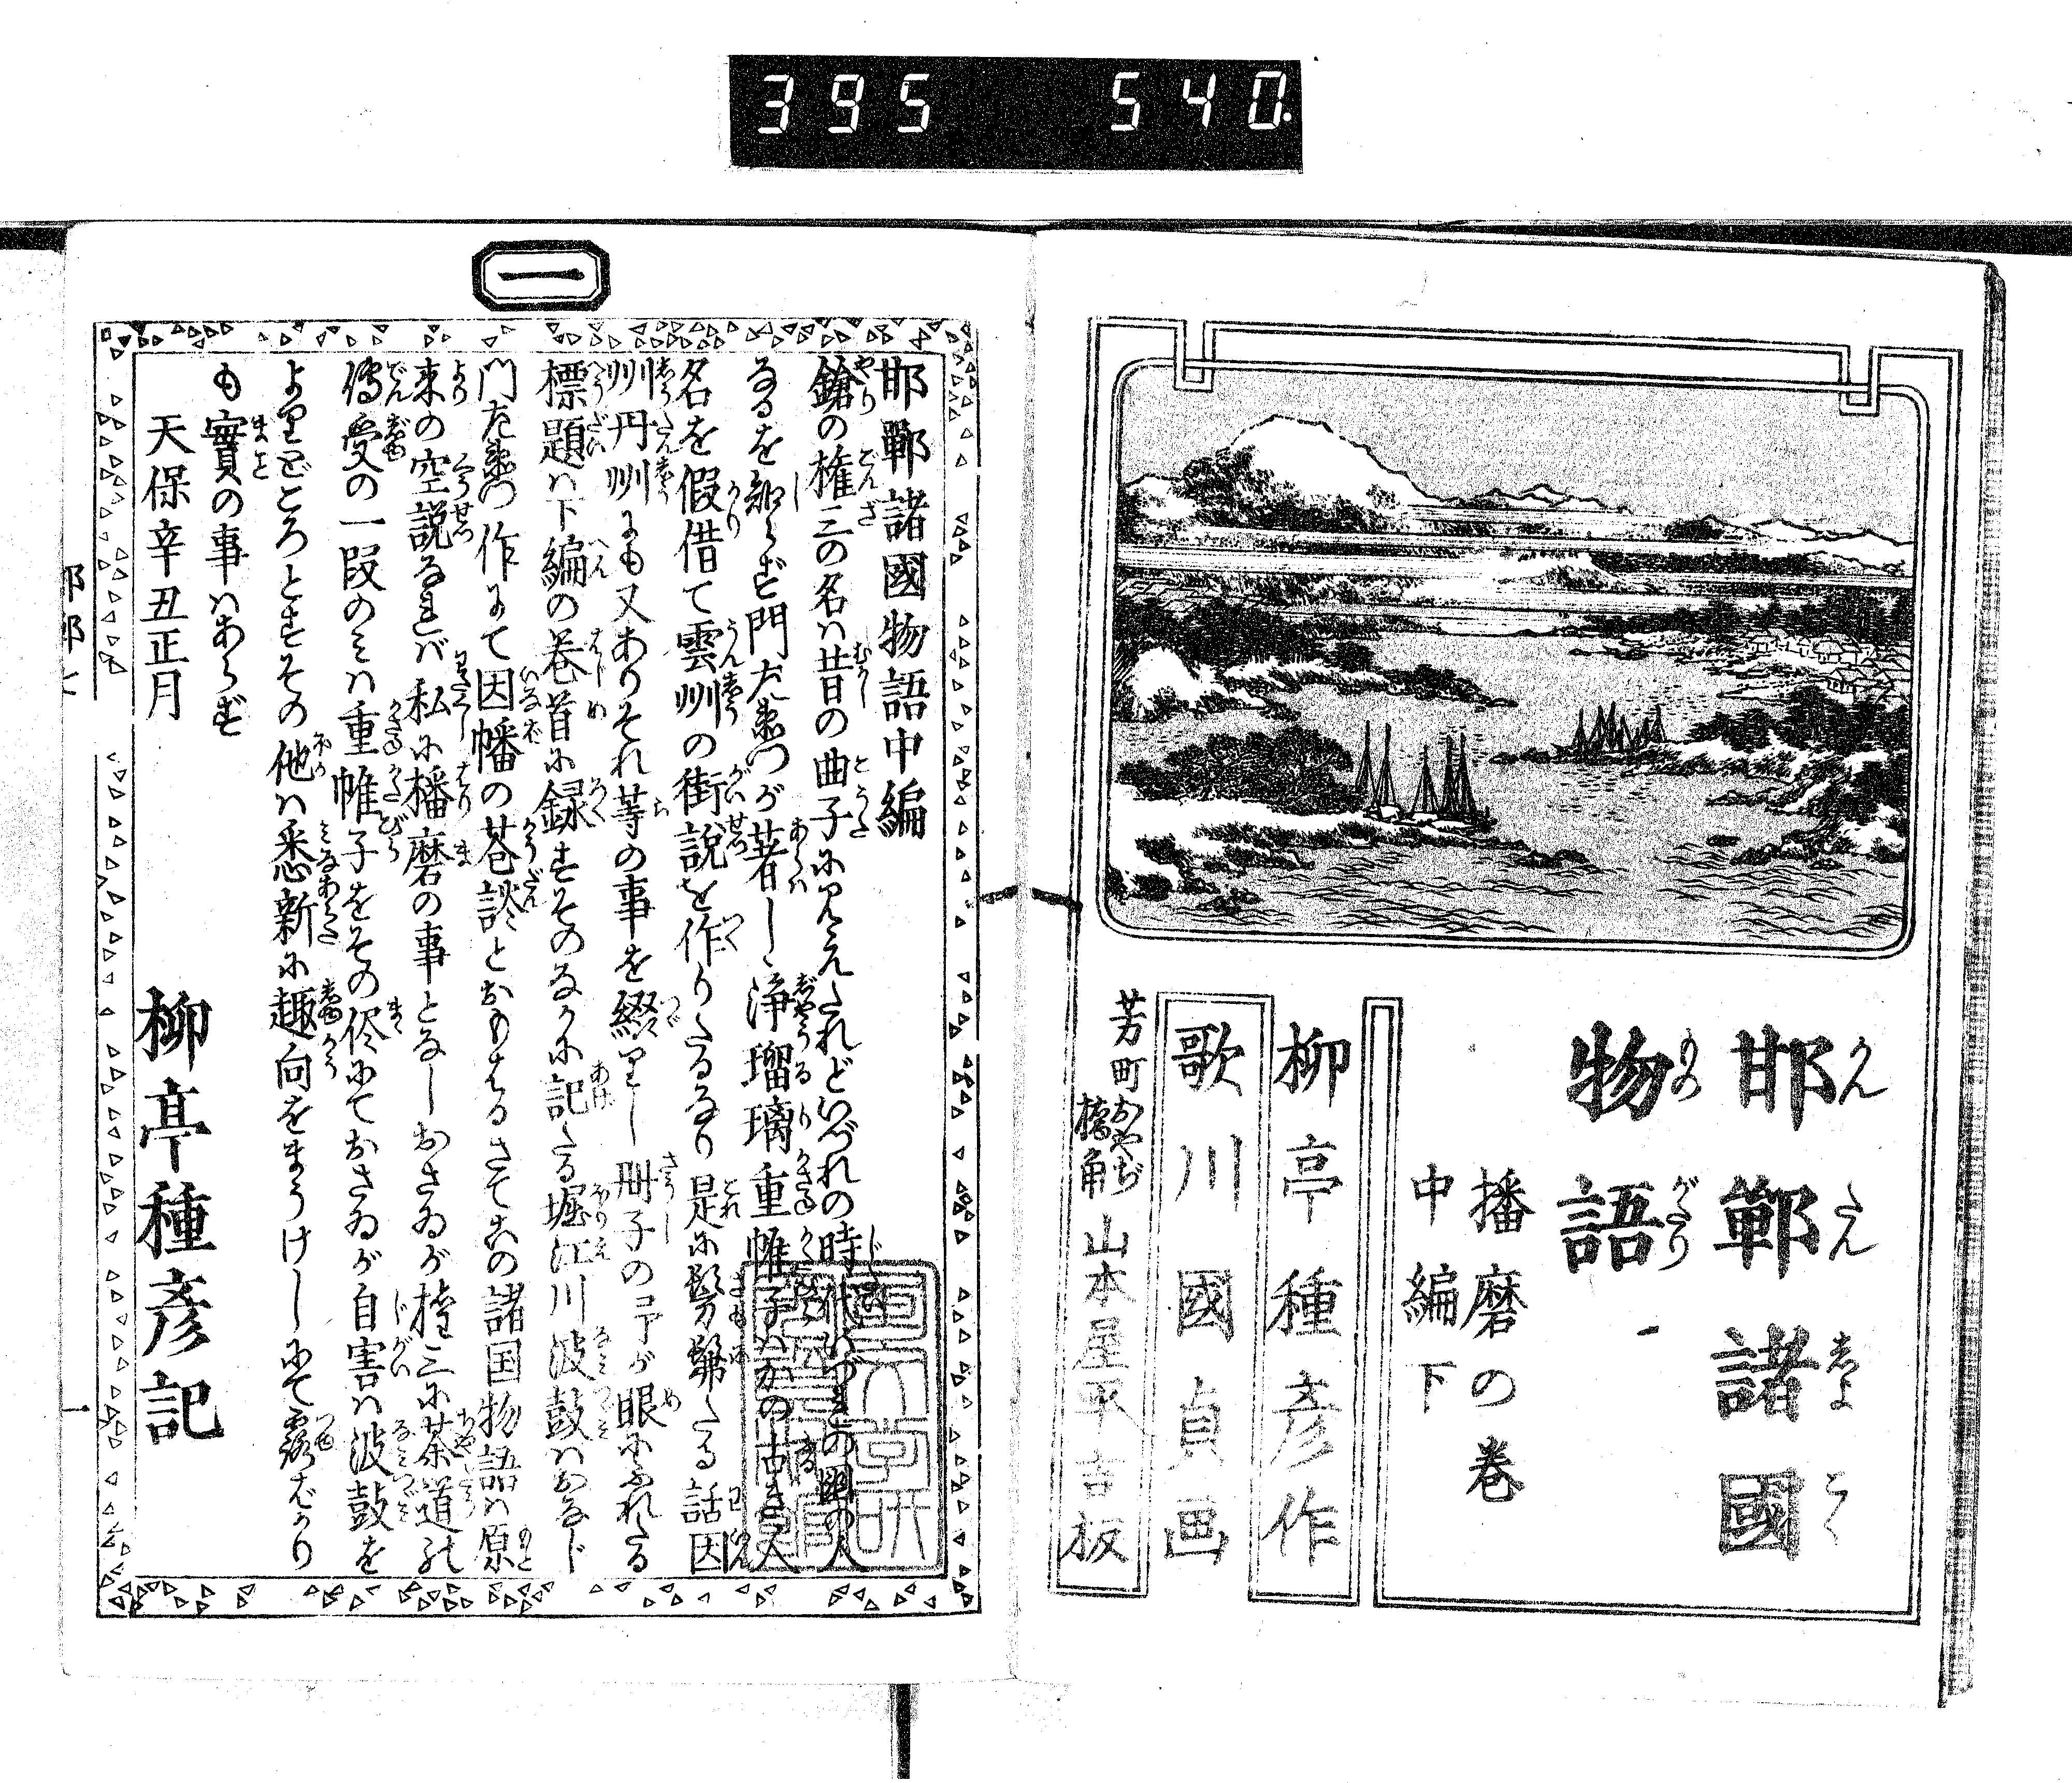 395 540
邯鄲諸國
物語
播磨の巻
中編下
柳亭種彦作
歌川國貞画
芳町おやぢ橋角 山本屋平吉板
一
邯鄲諸國物語中編
鎗の権三の名ハ昔の曲子に見えたれどいづれの時代いづれの國の人
なるを知らず門左衛門が著しゝ浄瑠璃重帷子ハかの古き人
名を假借て雲州の街説を作りたるなり是に髣髴たる話因
州丹州にも又ありそれ等の事を綴りし冊子の予が眼にふれたる
標題ハ下編の巻首に録すそのなかに記たる堀江川波鼓ハおなじ
門左衛門作にて因幡の巷談とおもはるさてこの諸国物語ハ原
来の空説なれバ私に播磨の事となしおさゐが権三に茶道の
傳受の一段のミハ重帷子をその侭にておさゐが自害ハ波鼓を
よりどころとすその他ハ悉新に趣向をまうけしにて露ばかり
も實の事ハあらず
天保辛丑正月
柳亭種彦記
一